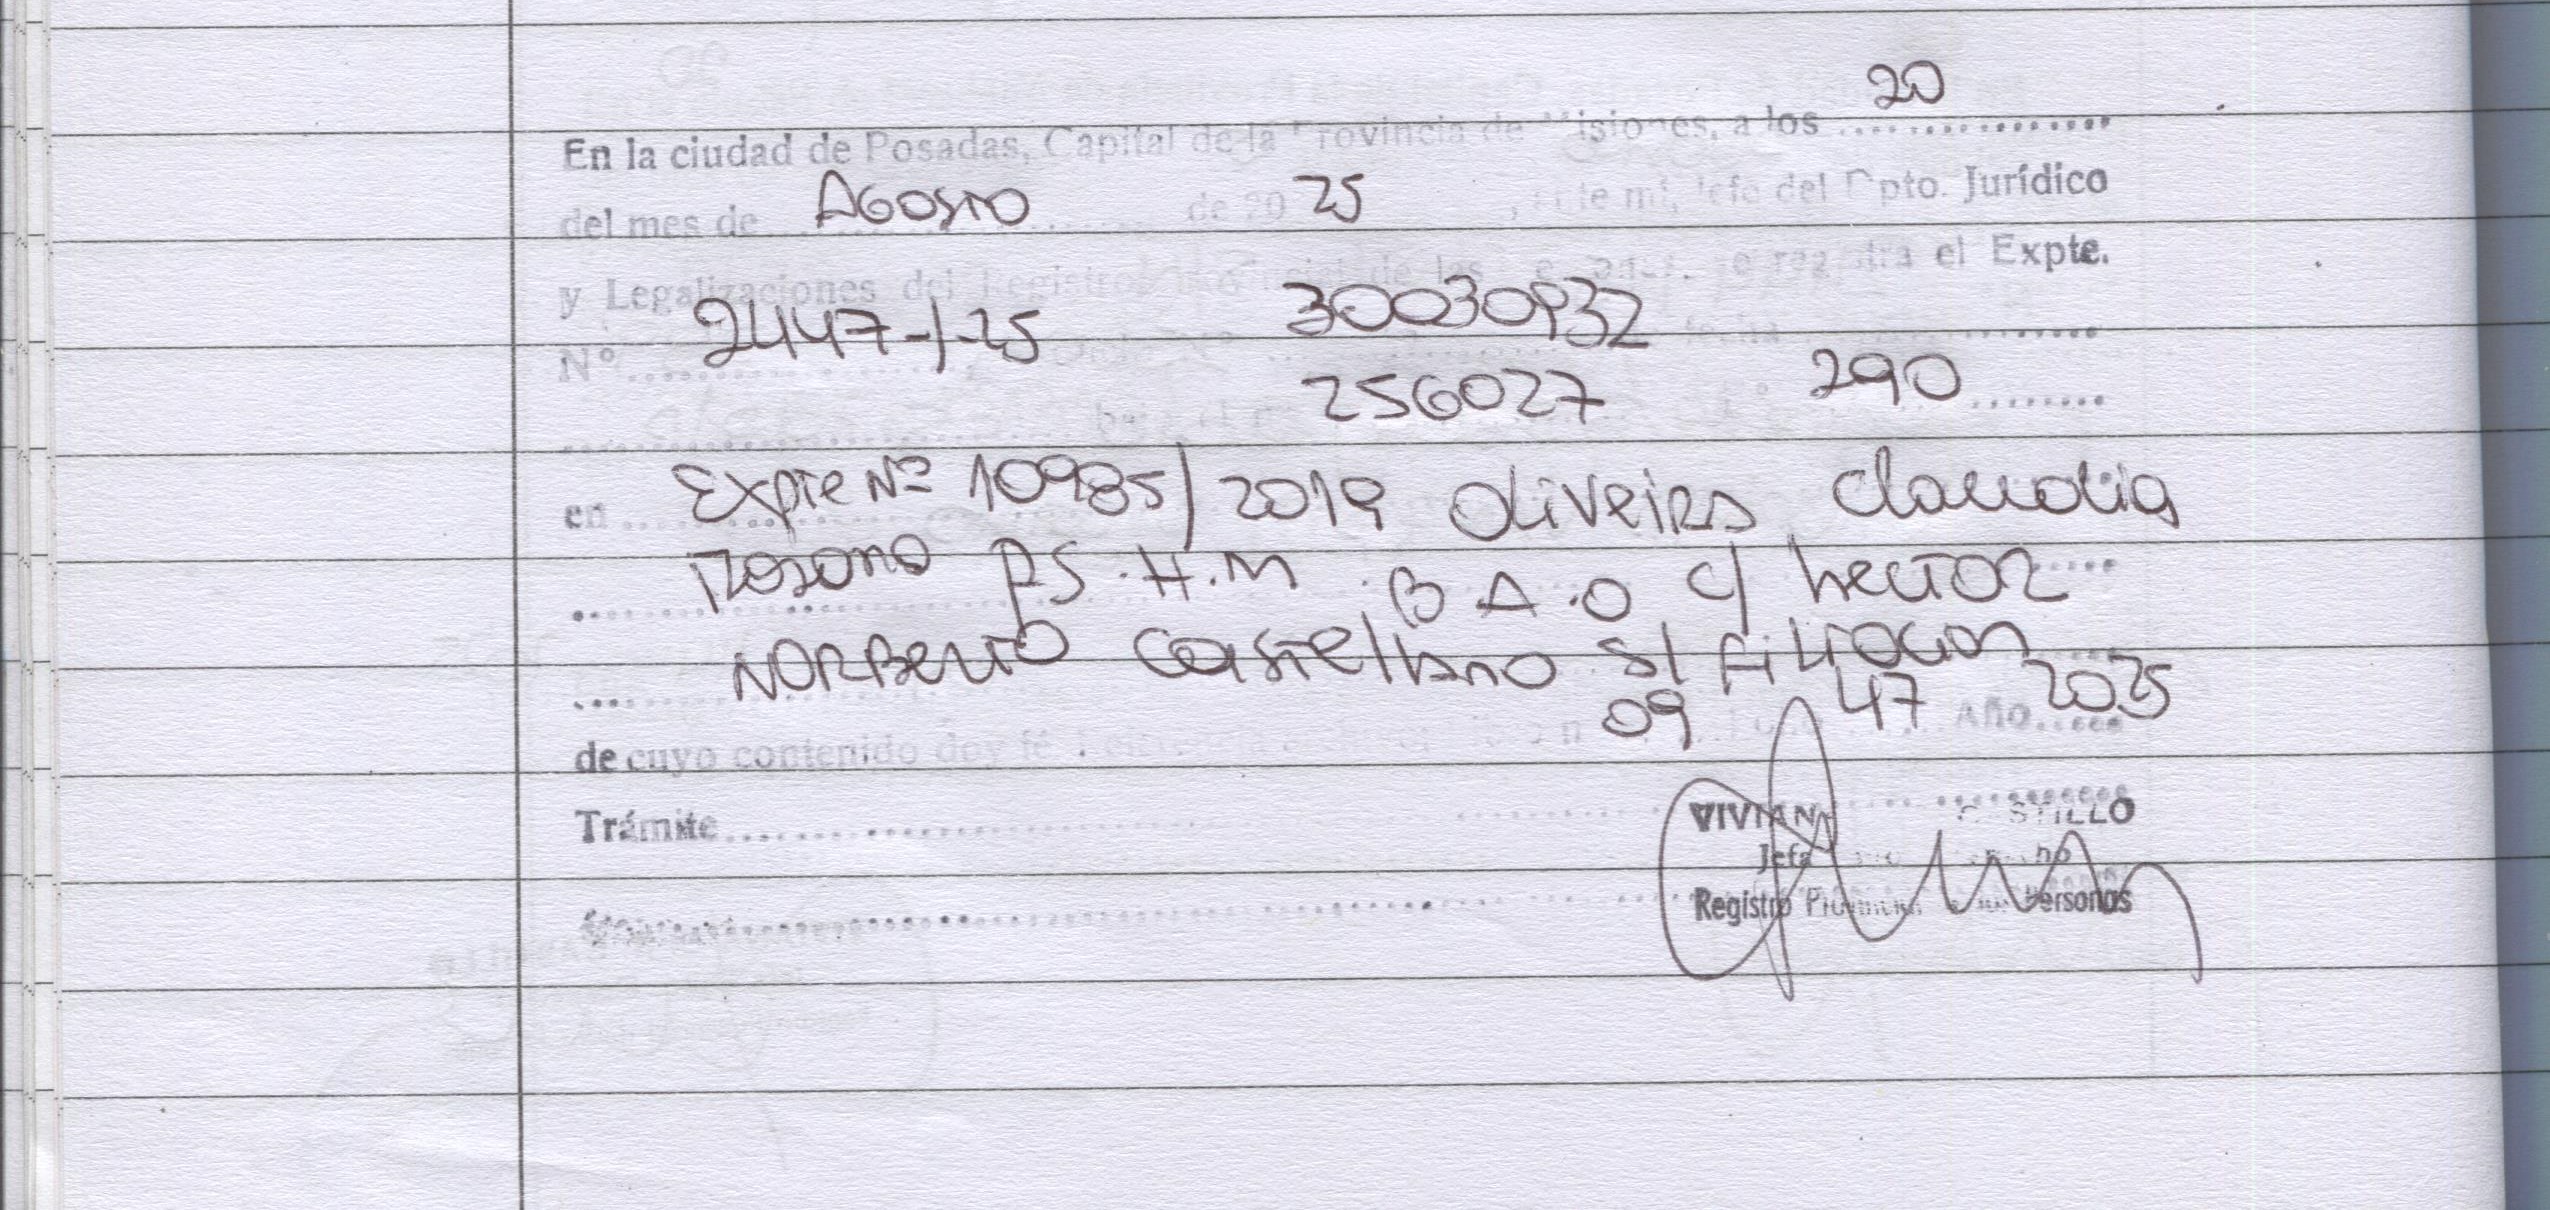 20
En la ciudad de Posadas, Capital de la Provincia de Misiones, a los
del mes de Agosto de 20 25, ante mí, Jefe del Dpto. Jurídico
y Legalizaciones del Registro Provincial de las el Expte.
Nº 2447-/-25 30030932 fecha
256027 290
en Expte Nº 10985/2019 Oliveira Claudia
Rosana PS.H.M B.A.O c/ hector
Norberto Castellano s/ filiacion
09 47 2025
de cuyo contenido doy fé. Año
Trámite
VIVIAN
Jefa
Registro Provincial Personas